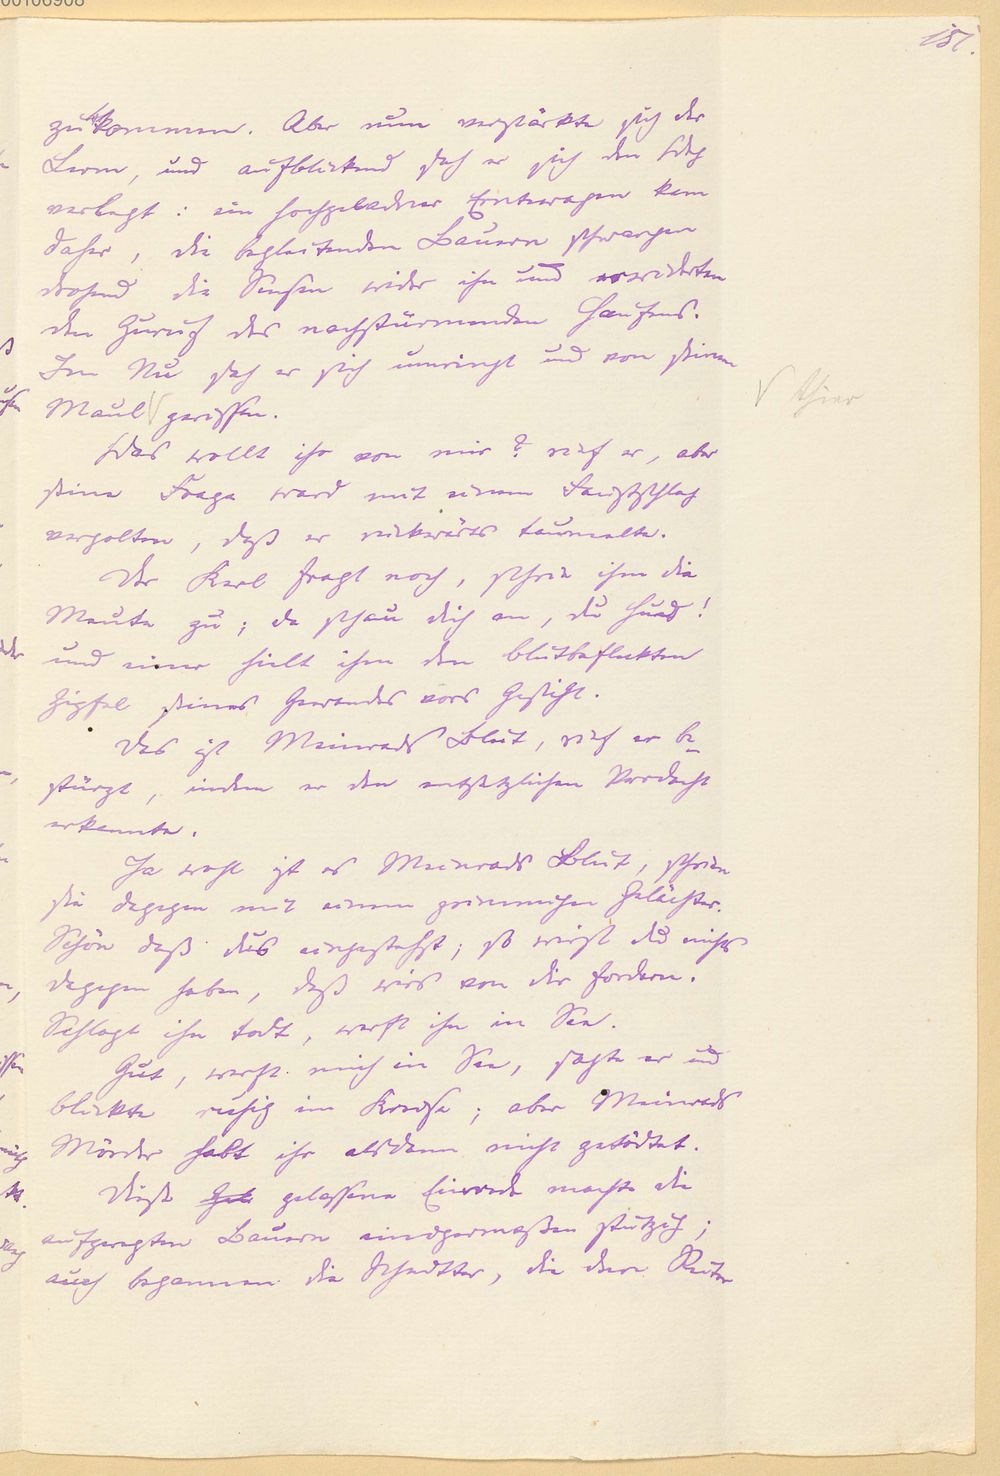 151.
zu kommen. Aber nun verstärkte sich der
Lärm, und aufblickend sah er sich den Weg
verlegt: ein hochgeladner Erntewagen kam
daher, die begleitenden Bauern schwangen
drohend die Sensen wider ihn und erwiderten
den Zuruf des nachstürmenden Haufens.
Im Nu sah er sich umringt und von seinem
Maul√ gerissen.
√ thier
Was wollt ihr von mir? rief er, aber
seine Frage ward mit einem Faustschlag
vergolten, daß er rückwärts taumelte.
Der Kerl fragt noch, schrie ihm die
Meute zu; da schau dich an, du Hund!
und einer hielt ihm den blutbefleckten
Zipfel seines Gewandes vors Gesicht.
Das ist Meinrads Blut, rief er be-
stürzt, indem er den entsetzlichen Verdacht
erkannte.
Ja wohl ist es Meinrads Blut, schrien
sie dagegen mit einem grimmigen Gelächter.
Schön daß dus eingestehst; so wirst du nichts
dagegen haben, daß wirs von dir fordern.
Schlagt ihn todt, werft ihn in See.
Gut, werft mich in See, sagte er und
blickte ruhig im Kreise; aber Meinrads
Mörder habt ihr alsdann nicht getödtet.
Diese gelassene Einrede machte die
aufgeregten Bauern einigermaßen stutzig;
auch begannen die Schnitter, die dem Reiter